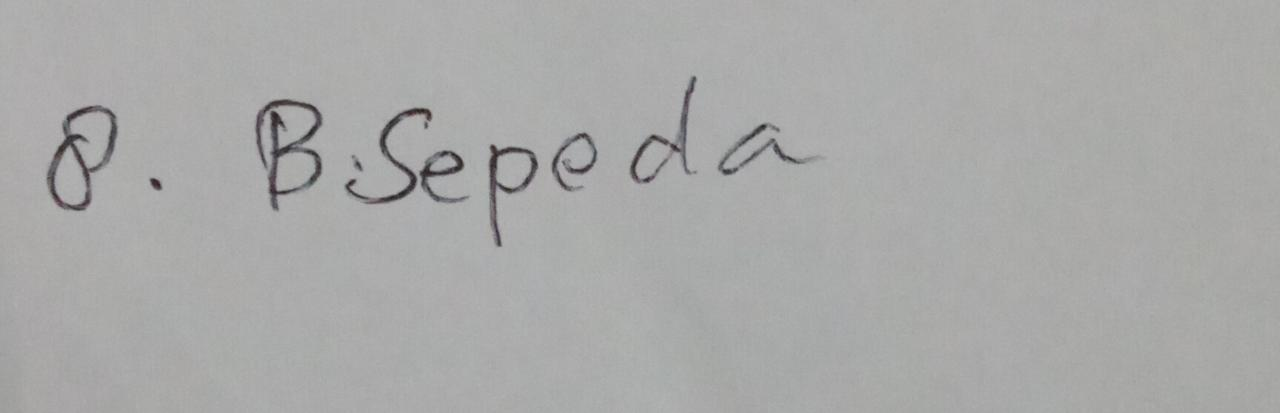 8. B. Sepeda